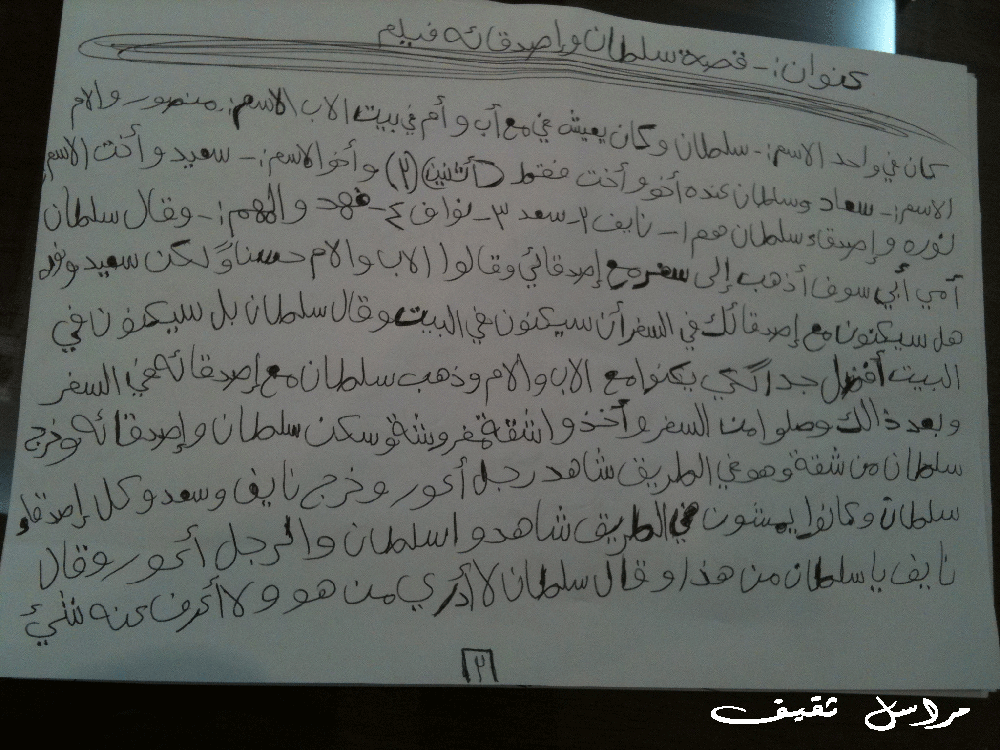 عنوان :- قصة سلطان وإصدقائه فيلم
كان في واحد الاسم :- سلطان وكان يعيش في مع أب وأم في بيت الاب الاسم :. منصور والام
الاسم :- سعاد وسلطان عنده أخو وأخت فقط أثنين (٢) وأخو الاسم :- سعيد وأخت الاسم
نوره وإصدقاء سلطان هم ١- نايف ٢- سعد ٣- نواف ٤- فهد والمهم :- وقال سلطان
أمي أبي سوف أذهب إلى سفر مع إصدقائي وقالوا الاب والام حسناً ولكن سعيد ونوره
هل سيكنون مع إصدقائك في السفر أن سيكنون في البيت وقال سلطان بل سيكنون في
البيت أفضل جدا لكي يكنوا مع الاب والام وذهب سلطان مع إصدقائه في السفر
وبعد ذالك وصلوا من السفر وأخذوا شقة مفروشة وسكن سلطان وإصدقائه وخرج
سلطان من شقة وهو في الطريق شاهد رجل أعور وخرج نايف وسعد وكل إصدقاء
سلطان وكانوا يمشون في الطريق شاهدوا سلطان والرجل أعور وقال
نايف يا سلطان من هذا وقال سلطان لا أدري من هو ولا أعرف عنه شئ
٢
مراسل ثقيف